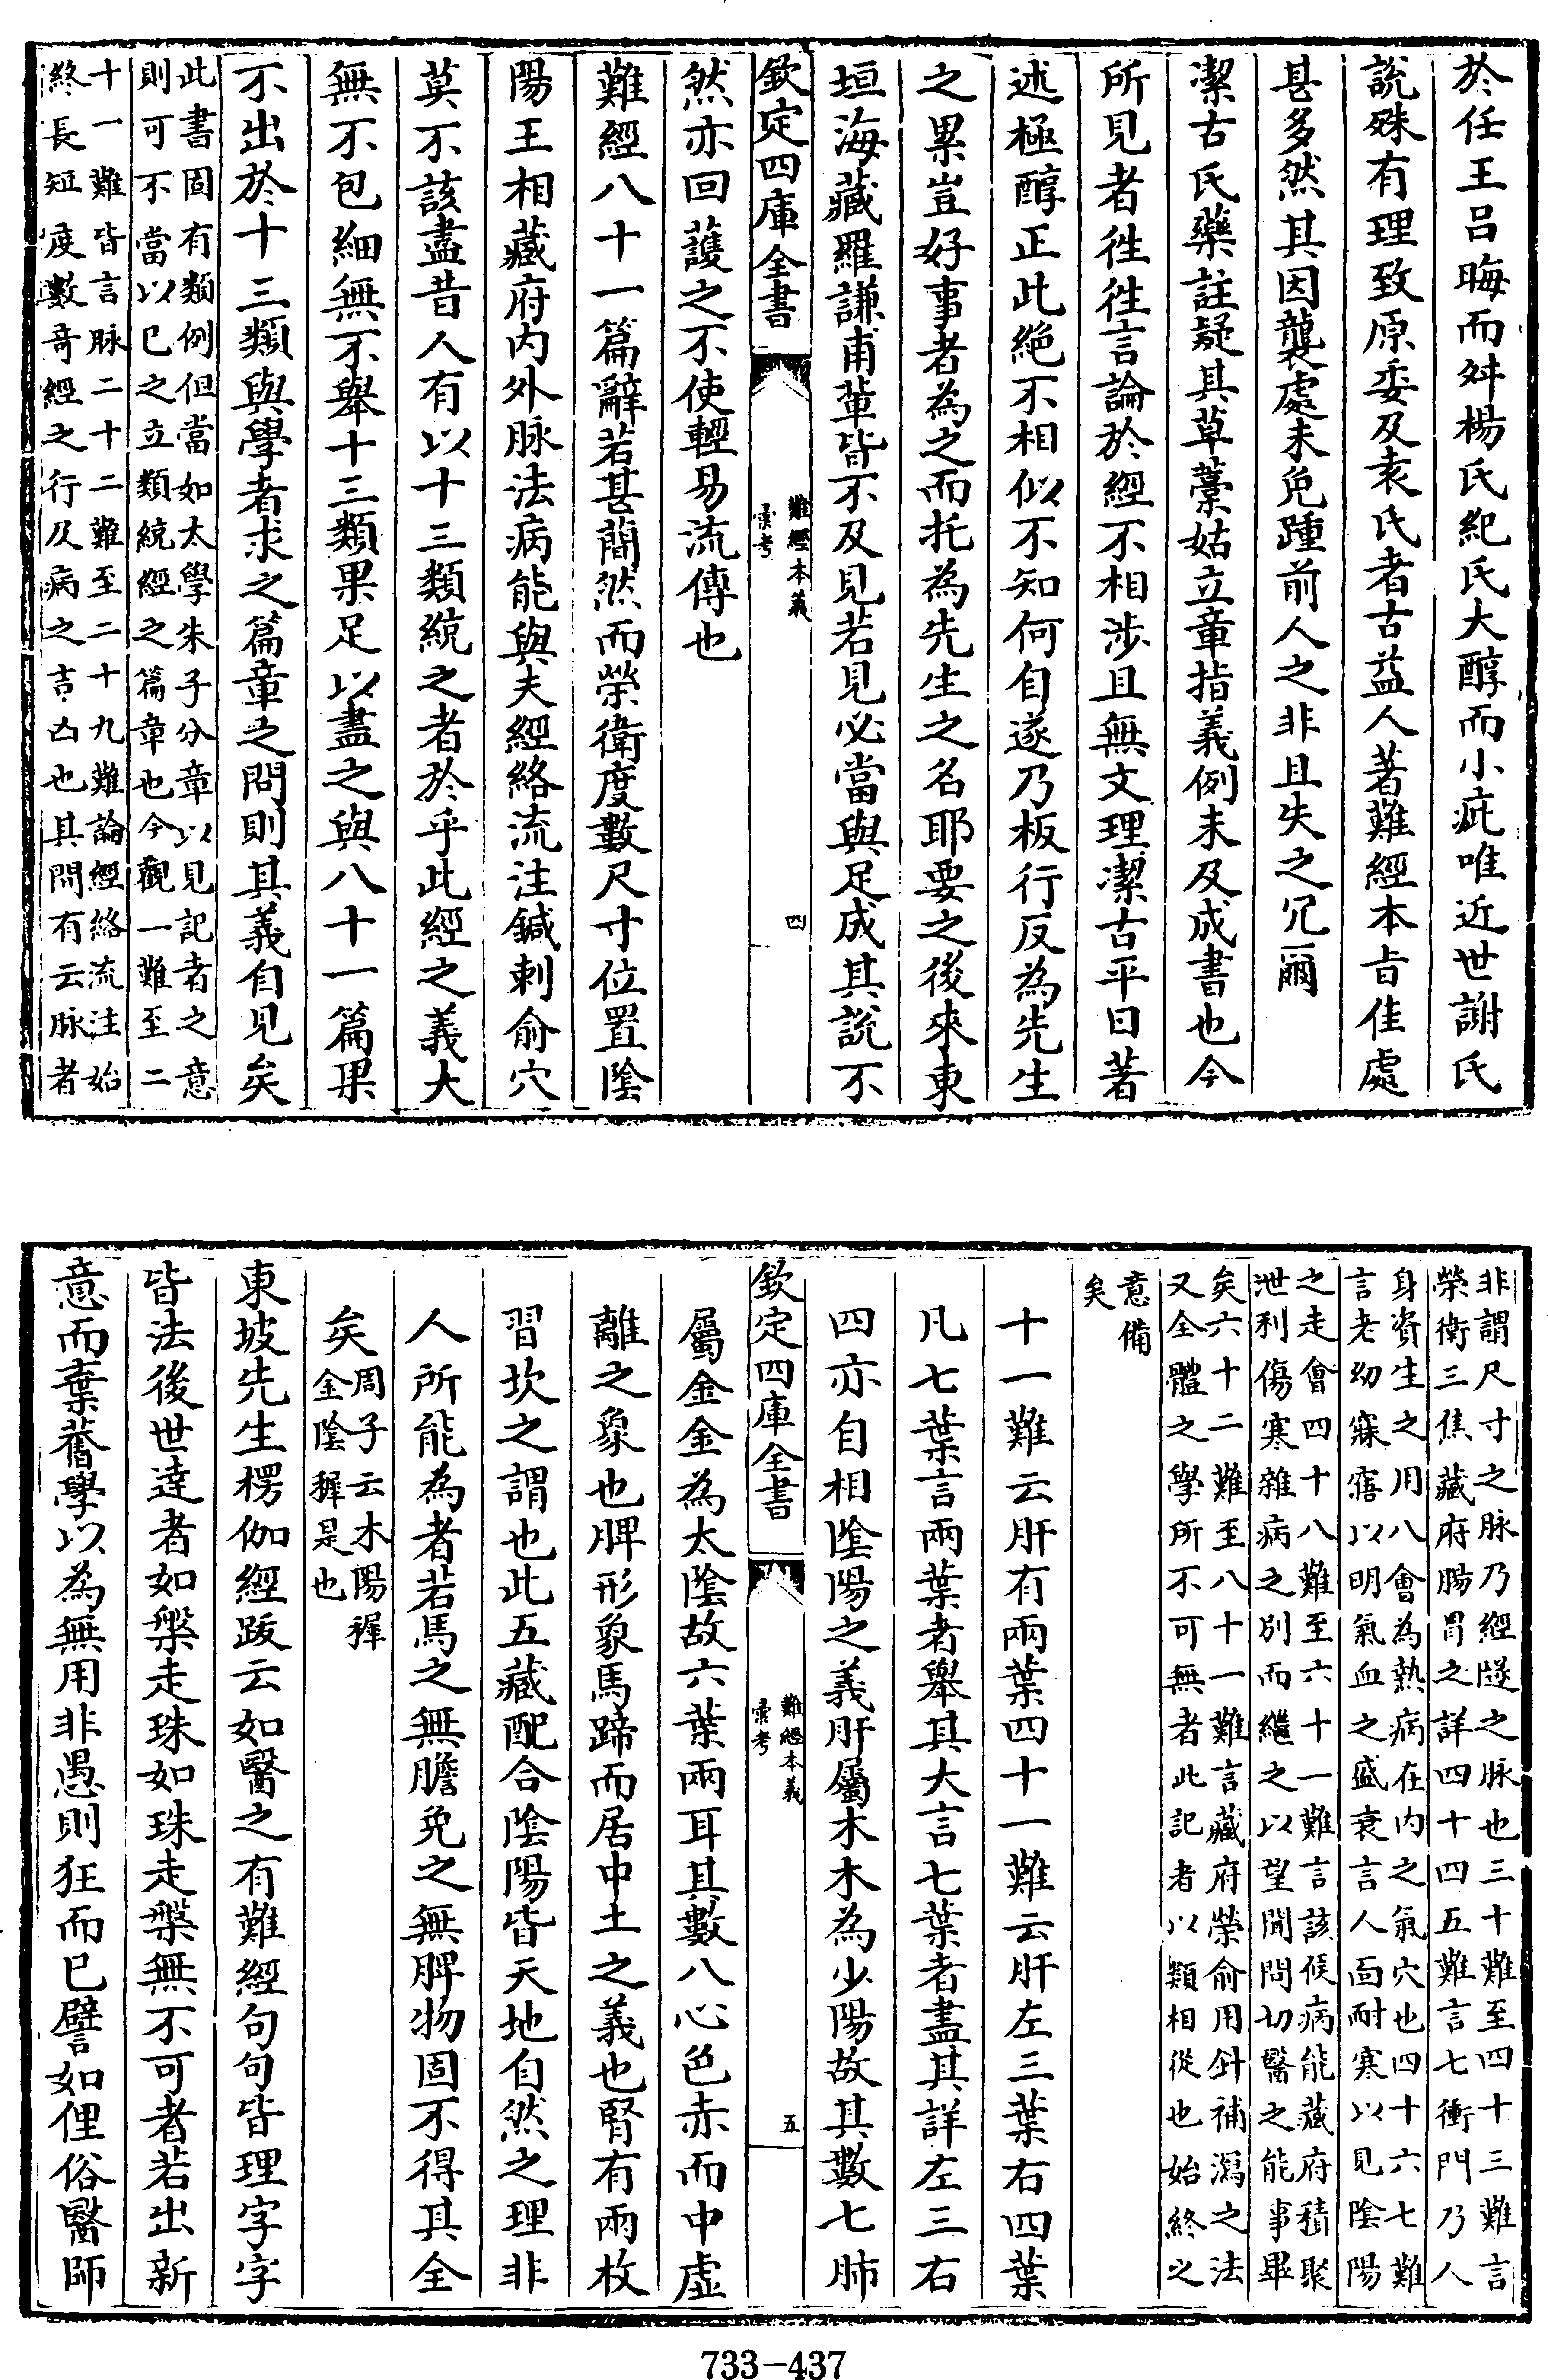 於任王呂晦而舛楊氏紀氏大醇而小疵唯近世謝氏
說殊有理致原委及袁氏者古益人著難經本㫖佳處
甚多然其因襲處未免踵前人之非且失之冗爾
潔古氏藥註疑其草藁姑立章指義例未及成書也今
所見者徃徃言論於經不相涉且無文理潔古平日著
述極醇正此絶不相似不知何自遂乃板行反為先生
之累豈好事者為之而托為先生之名耶要之後來東
垣海藏羅謙甫軰皆不及見若見必當與足成其說不
欽定四庫全書
難經本義
彚考
四
然亦回䕶之不使輕易流傳也
難經八十一篇辭若甚簡然而榮衛度數尺寸位置隂
陽王相藏府内外脉法病能與夫經絡流注鍼刺俞穴
莫不該盡昔人有以十三類統之者於乎此經之義大
無不包細無不舉十三類果足以盡之與八十一篇果
不出於十三類與學者求之篇章之間則其義自見矣
此書固有類例但當如太學朱子分章以見記者之意
則可不當以已之立類統經之篇章也今觀一難至二
十一難皆言脉二十二難至二十九難論經絡流注始
終長短度數奇經之行及病之吉凶也其間有云脉者
非謂尺寸之脉乃經隧之脉也三十難至四十三難言
榮衛三焦藏府腸胃之詳四十四五難言七衝門乃人
身資生之用八會為熱病在内之氣穴也四十六七難
言老幼寐寤以明氣血之盛衰言人面耐寒以見陰陽
之走會四十八難至六十一難言該候病能藏府積聚
泄利傷寒雜病之别而繼之以望聞問切醫之能事畢
矣六十二難至八十一難言藏府榮俞用針補瀉之法
又全體之學所不可無者此記者以類相從也始終之
意備
矣
十一難云肝有兩葉四十一難云肝左三葉右四葉
凡七葉言兩葉者舉其大言七葉者盡其詳左三右
四亦自相隂陽之義肝屬木木為少陽故其數七肺
欽定四庫全書
難經本義
彚考
五
屬金金為太隂故六葉兩耳其數八心色赤而中虛
離之象也脾形象馬蹄而居中土之義也腎有兩枚
習坎之謂也此五藏配合隂陽皆天地自然之理非
人所能為者若馬之無膽兔之無脾物固不得其全
矣
周子云木陽穉
金隂穉是也
東坡先生楞伽經䟦云如醫之有難經句句皆理字字
皆法後世逹者如槃走珠如珠走槃無不可者若出新
意而棄舊學以為無用非愚則狂而已譬如俚俗醫師
733-437